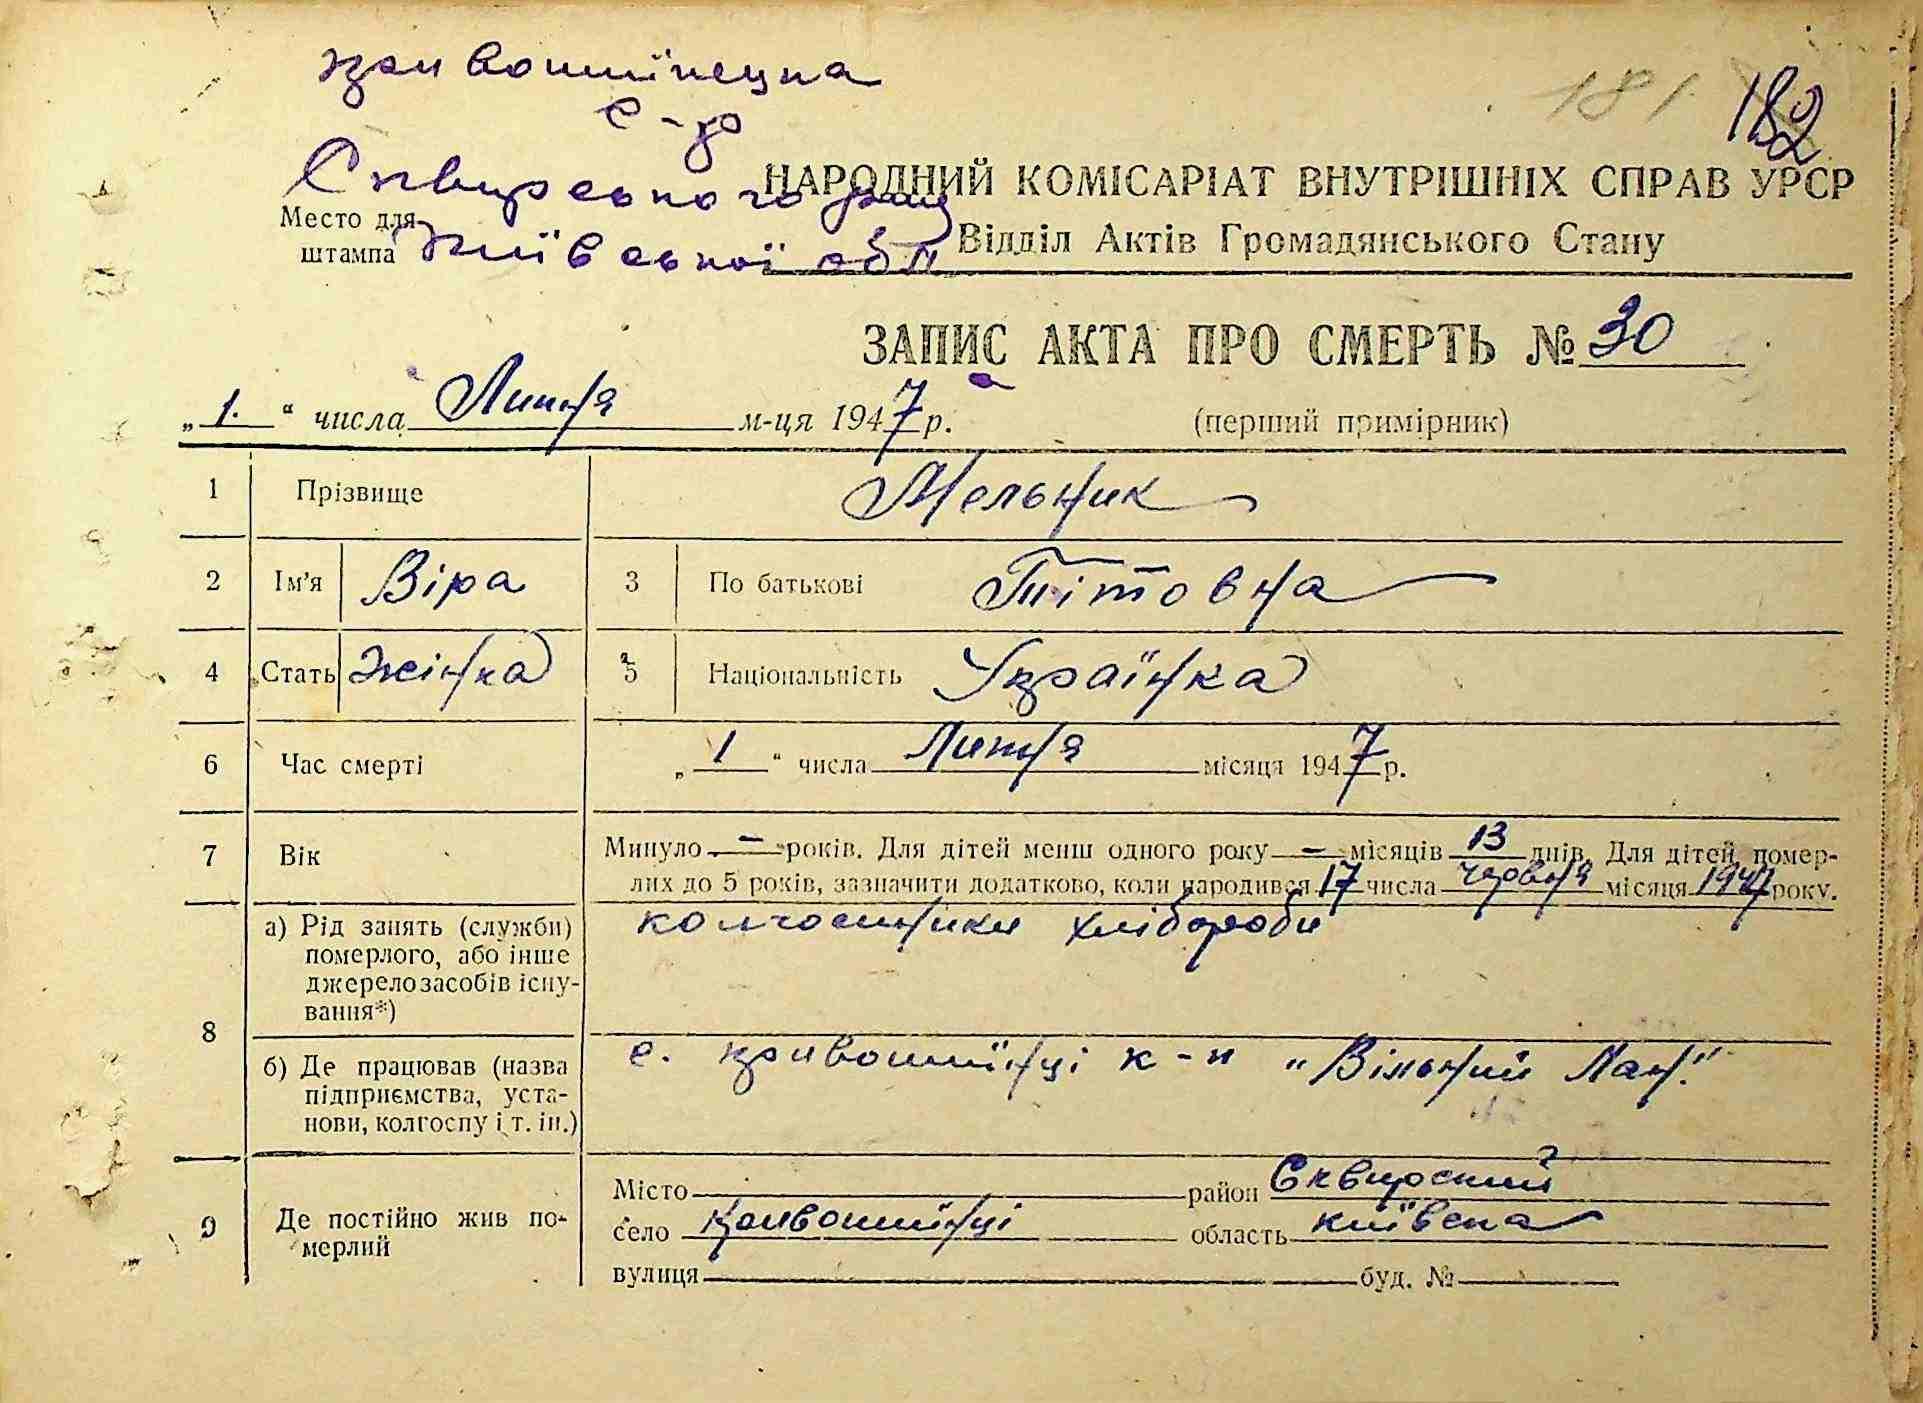 кривошиїнецка
с-р
181 182
Сквирського р-ну
НАРОДНИЙ КОМІСАРІАТ ВНУТРІШНІХ СПРАВ УРСР
Место для штампа
Київської обл
Відділ Актів Громадянського Стану
ЗАПИС АКТА ПРО СМЕРТЬ № 30
„1.“ числа Липня м-ця 1947 р. (перший примірник)
1 Прізвище Мельник
2 Ім'я Віра 3 По батькові Тітовна
4 Стать Жінка 5 Національність Українка
6 Час смерті „1“ числа Липня місяця 1947 р.
7 Вік Минуло - років. Для дітей менш одного року - місяців 13 днів. Для дітей помер-
лих до 5 років, зазначити додатково, коли народився 17 числа червня місяця 1947 року.
8 а) Рід занять (служби) колгоспники хлібороби
померлого, або інше
джерело засобів існу-
вання*)
б) Де працював (назва с. кривошиїнці к-п „Вільний Лан“.
підприємства, уста-
нови, колгоспу і т. ін.)
9 Де постійно жив по-
мерлий
Місто район Сквирский
село Кривошиїнці область київска
вулиця буд. №